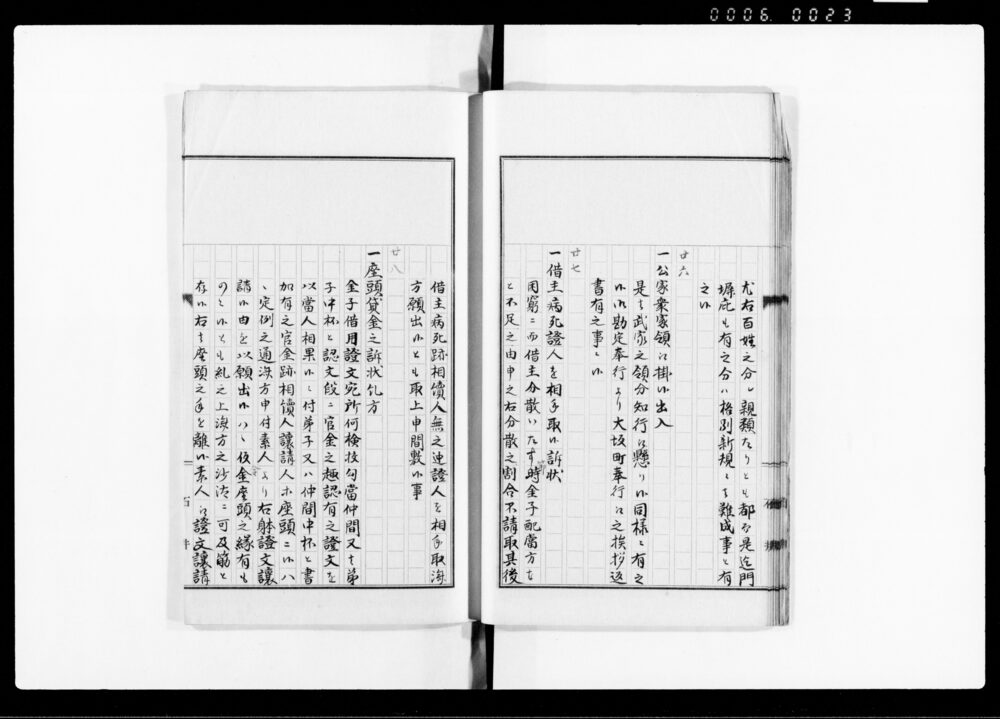 0006 0023
尤右百姓之分ハ親類たりとも都而是迄門
塀庇も有之分ハ格別新規ニ者難成事ニ有
之候
廿六
一公家衆家領江掛候出入
是者武家之領分知行江懸り候同様ニ有之
候御勘定奉行より大坂町奉行江之挨拶返
書有之事ニ候
廿七
一借主病死證人を相手取候訴状
困窮ニ而借主分散いたす時金子配當方を
と不足之由申之右分散之割合不請取其後
借主病死跡相續人無之迚證人を相手取済
方願出候とも取上申間敷候事
廿八
一座頭貸金之訴状糺方
金子借用證文宛所何検校勾當仲間又者弟
子中杯と認文段ニ官金之趣認有之證文を
以當人相果候ニ付弟子又ハ仲間中杯と書
加有之官金跡相續人讓請人ホ座頭ニ候ハ
、定例之通済方申付素人より右躰證文讓
請候由を以願出候ハ、仮金座頭之縁有も
のニ候とも糺之上済方之沙汰ニ可及筋と
存候右者座頭之手を離候素人江證文讓請